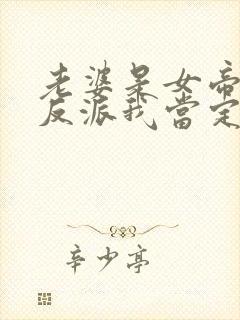 老婆是女帝
反派我當定
辛少亭